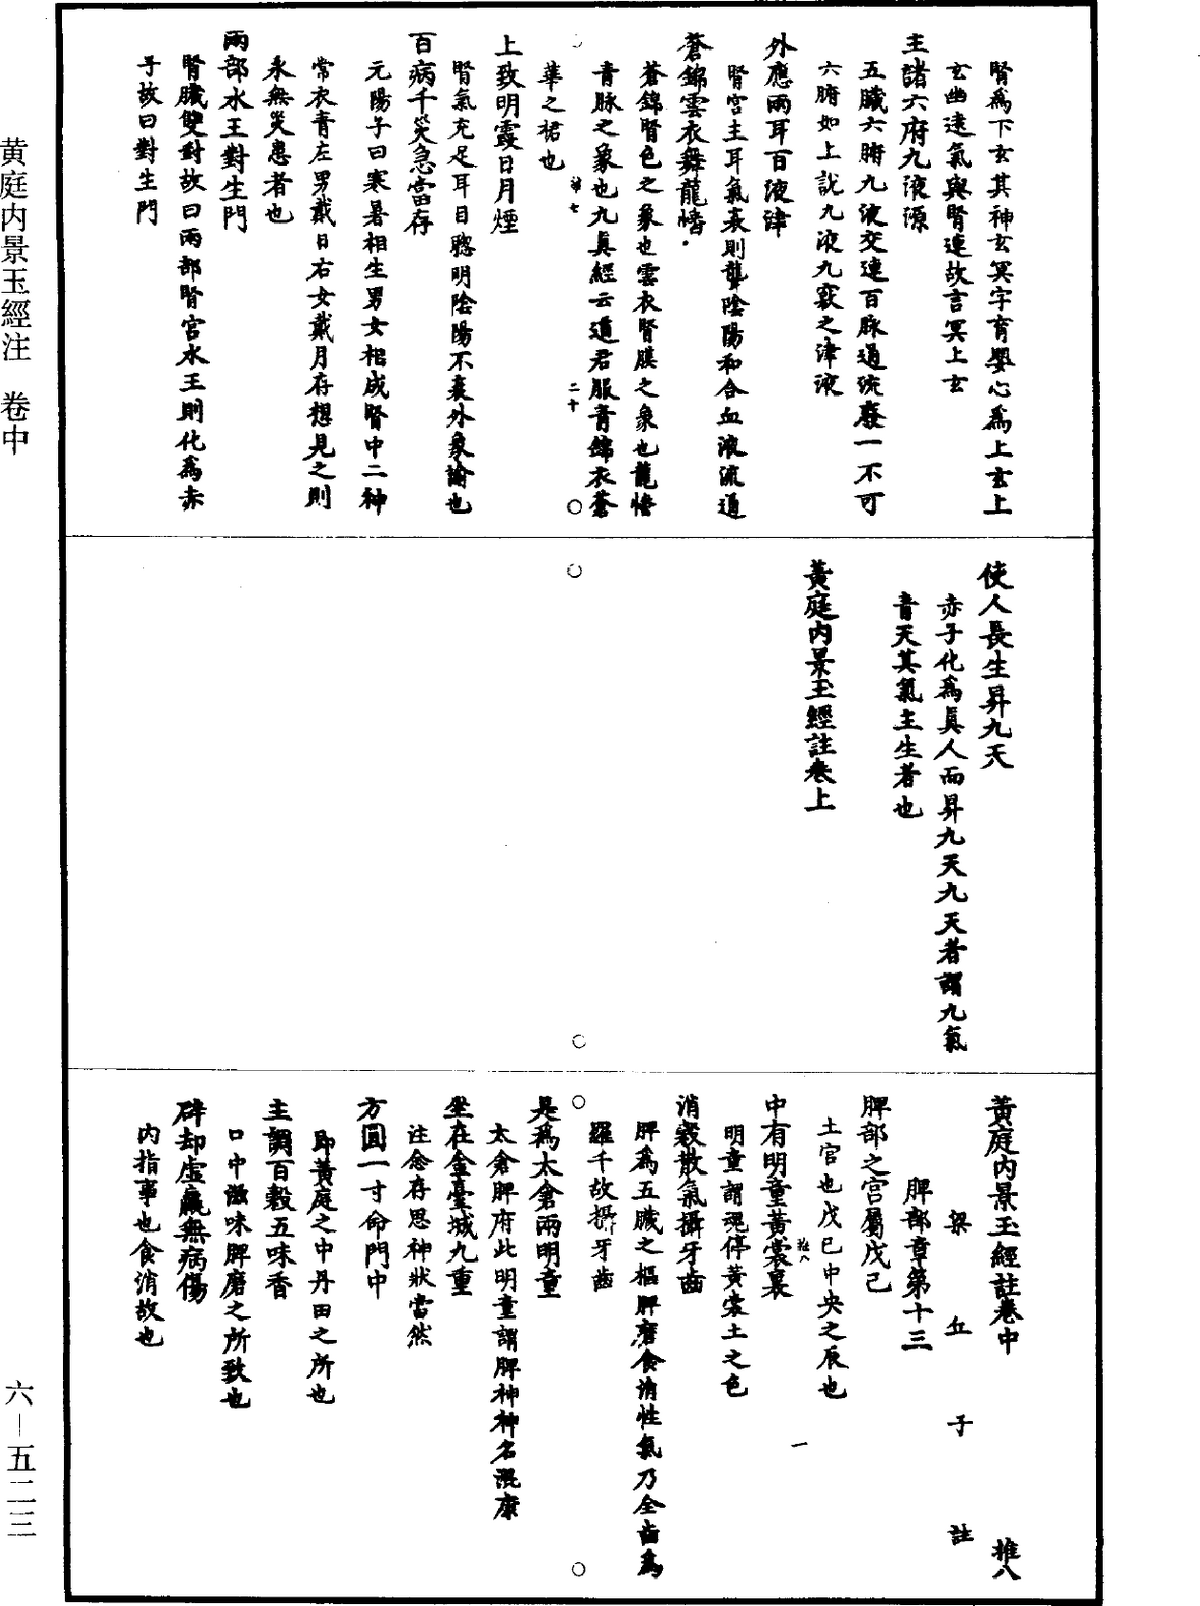 腎爲下玄其神玄冥字育嬰心爲上玄上
玄幽遠氣與腎連故言冥上玄
主諸六府九液源
五臟六腑九液交連百脉通流廢一不可
六腑如上說九液九竅之津液
外應兩耳百液津
腎宮主耳氣衰則聾陰陽和合血液流通
蒼錦雲衣舞龍幡
蒼錦腎色之象也雲衣腎膜之象也龍幡
青脉之象也九真經云道君服青錦衣蒼
華之裙也
二十
上致明霞日月煙
腎氣充足耳目聰明陰陽不衰外象諭也
百病千災急當存
元陽子曰寒暑相生男女相成腎中二神
常衣青左男戴日右女戴月存想見之則
永無災患者也
兩部水王對生門
腎臟雙對故曰兩部腎宮水王則化爲赤
子故曰對生門
使人長生昇九天
赤子化爲真人而昇九天九天者謂九氣
青天其氣主生者也
黃庭內景玉經註卷上
黃庭內景玉經註卷中 推八
梁丘子註
脾部章第十三
脾部之宮屬戊己
土官也戊巳中央之辰也
中有明童黃裳裏
推八 一
明童謂魂停黃裳土之色
消穀散氣攝牙齒
脾爲五臟之樞脾磨食消性氣乃全齒爲
羅千故攝牙齒
是爲太倉兩明童
太倉脾府此明童謂脾神神名混康
坐在金臺城九重
注念存思神狀當然
方圓一寸命門中
即黃庭之中丹田之所也
主調百穀五味香
口中滋味脾磨之所致也
辟却虛羸無病傷
內指事也食消故也
黃庭內景玉經注 卷中
六—五二三